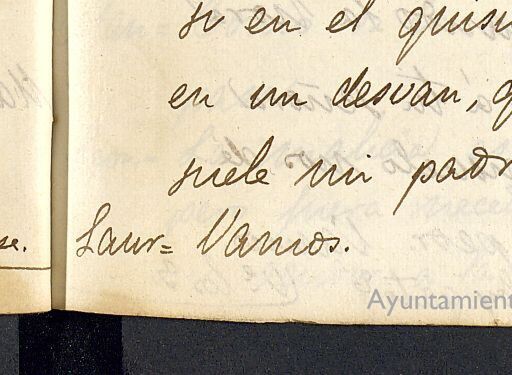 si en el quisi
en un desvan, q
suele mi padr
se. Laur= Vamos.
Ayuntamient